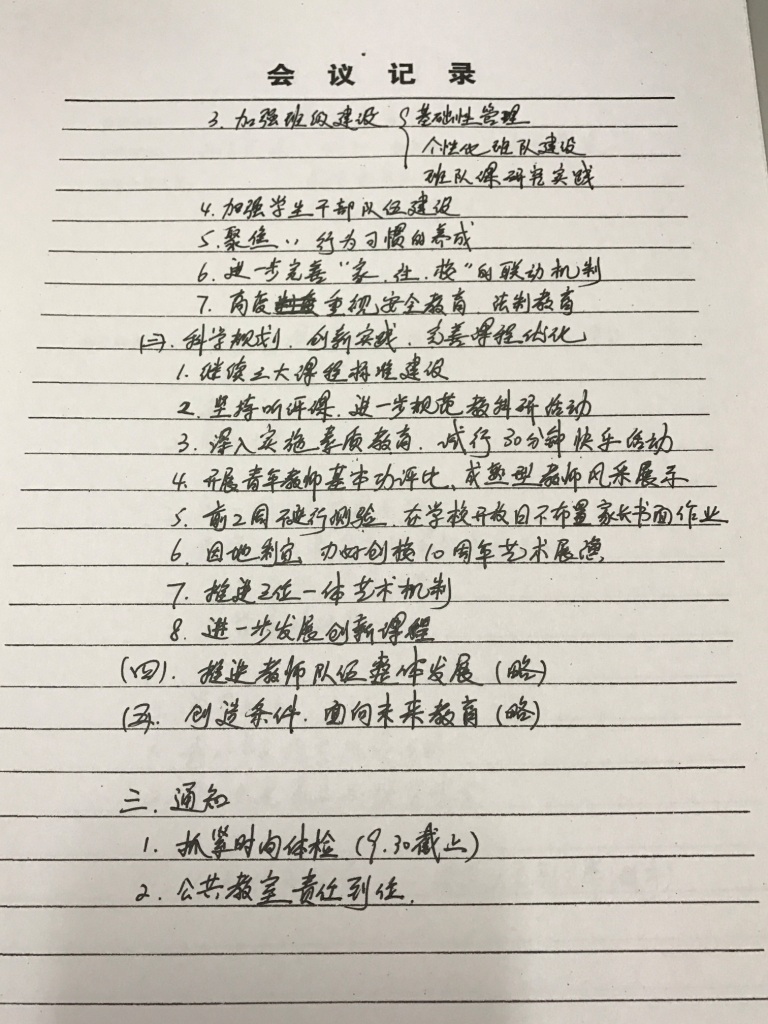 会议记录
3. 加强班级建设 { 基础性管理
个性化班队建设
班队课研究实践
4. 加强学生干部队伍建设
5. 聚焦，行为习惯的养成
6. 进一步完善"家、社、校"的联动机制
7. 高度重视安全教育、法制教育
(三). 科学规划、创新实践、完善课程优化
1. 继续三大课程标准建设
2. 坚持听评课、进一步规范教科研活动
3. 深入实施素质教育、试行30分钟快乐活动
4. 开展青年教师基本功评比、成熟型教师风采展示
5. 前2周不进行测验、在学校开放日不布置家长书面作业
6. 因地制宜、办好创校10周年艺术展演
7. 推进三位一体艺术机制
8. 进一步发展创新课程
(四). 推进教师队伍整体发展 (略)
(五). 创造条件、面向未来教育 (略)
三. 通知
1. 抓紧时间体检 (9.30截止)
2. 公共教室责任到位.